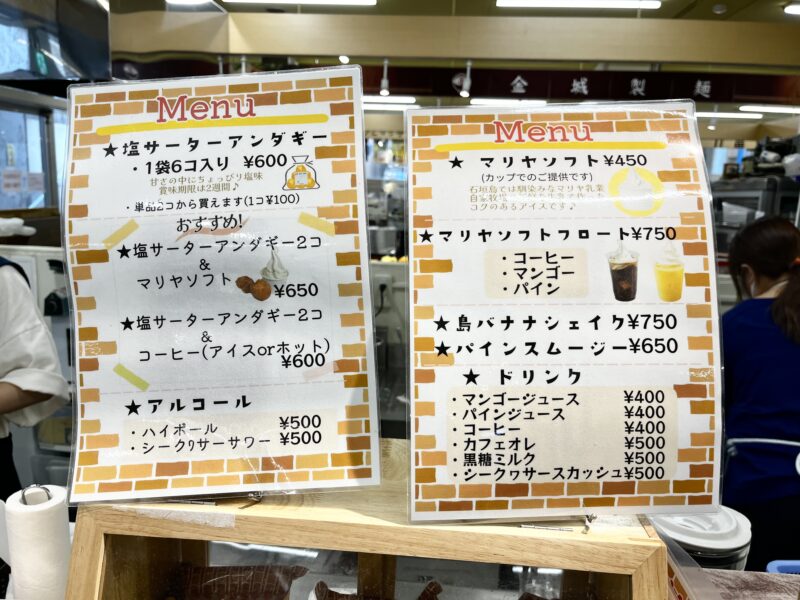 金城製麺
Menu
★塩サーターアンダギー
・1袋6コ入り ¥600
甘さの中にちょっぴり塩味
賞味期限は2週間♪
・単品2コから買えます(1コ¥100)
おすすめ!
★塩サーターアンダギー2コ
&
マリヤソフト
¥650
★塩サーターアンダギー2コ
&
コーヒー(アイスorホット)
¥600
★アルコール
・ハイボール ¥500
・シークヮサーサワー ¥500
Menu
★ マリヤソフト¥450
(カップでのご提供です)
石垣島では馴染みなマリヤ乳業
コクのあるアイスです♪
★マリヤソフトフロート¥750
・コーヒー
・マンゴー
・パイン
★島バナナシェイク¥750
★パインスムージー¥650
★ ドリンク
・マンゴージュース ¥400
・パインジュース ¥400
・コーヒー ¥400
・カフェオレ ¥500
・黒糖ミルク ¥500
・シークヮサースカッシュ¥500